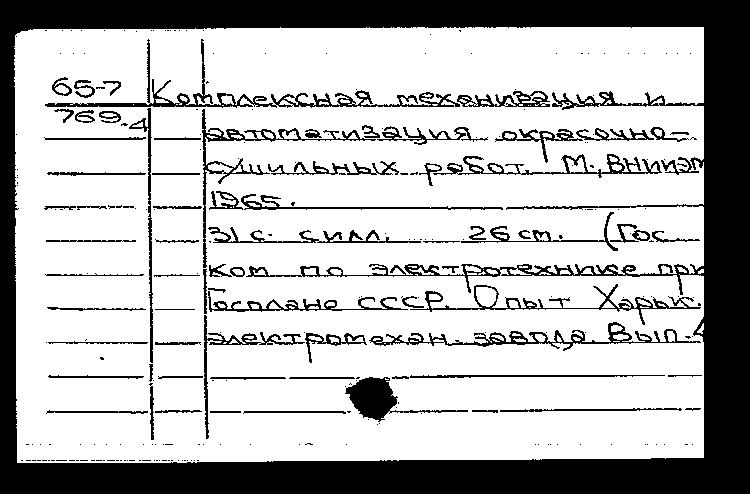 65-7 Комплексная механизация и
769.4 автоматизация окрасочно-
сушильных работ. М., ВНИИЭМ
1965.
31 с. с илл. 26 см. (Гос
ком по электротехнике при
Госплане СССР. Опыт Харьк.
электромехан. завода. Вып. 4